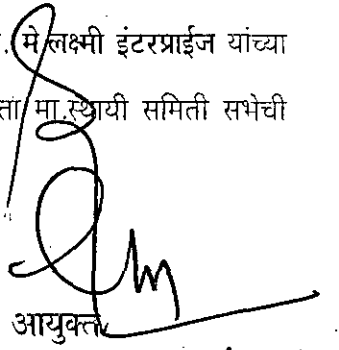 . मे.लक्ष्मी इंटरप्राईज यांच्या
मा.स्थायी समिती सभेची
आयुक्त